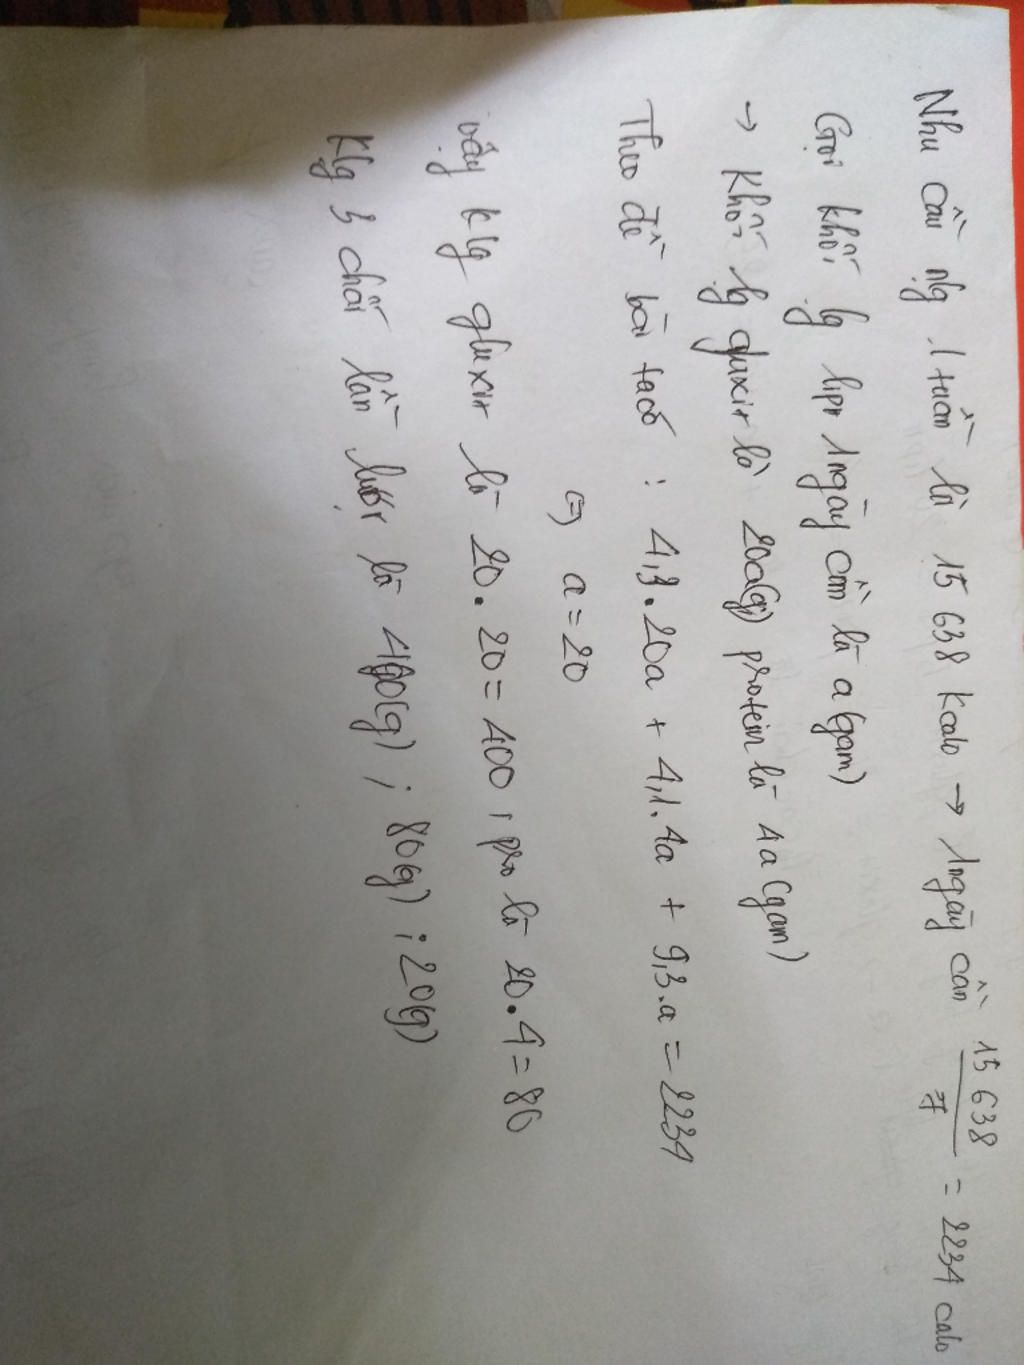 Nhu cầu ng 1 tuần là 15 638 kcalo → 1 ngày cần 15 638 / 7 = 2234 calo
Gọi khối lg lipit 1 ngày cần là a (gam)
→ Khối lg gluxit là 20a(g) protein là 4a (gam)
Theo đề bài ta có : 4,3.20a + 4,1.4a + 9,3.a = 2234
⇔ a = 20
Vậy klg gluxit là 20.20 = 400 , pro là 20.4 = 80
Klg 3 chất lần lượt là 400(g) ; 80(g) ; 20(g)